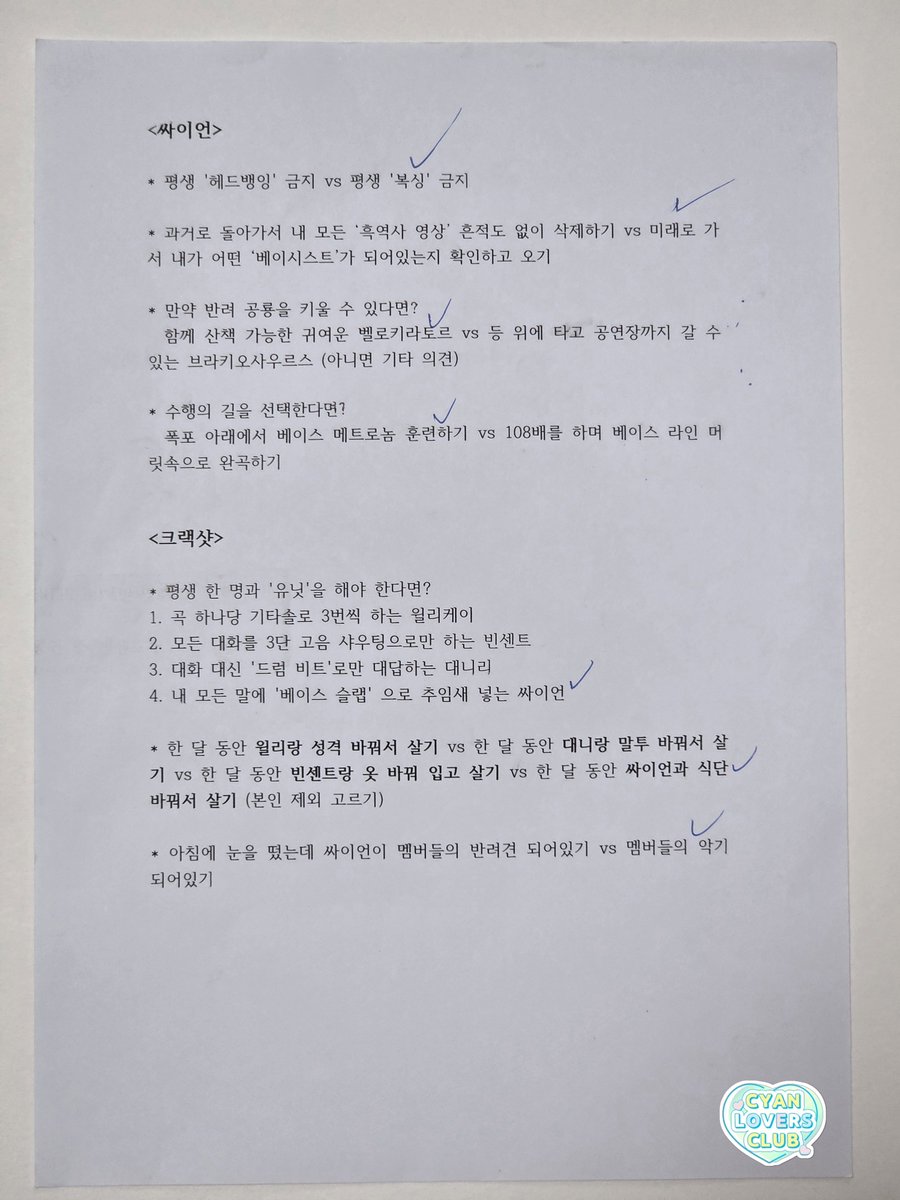 <싸이언>
* 평생 '헤드뱅잉' 금지 vs 평생 '복싱' 금지
* 과거로 돌아가서 내 모든 ‘흑역사 영상’ 흔적도 없이 삭제하기 vs 미래로 가
서 내가 어떤 ‘베이시스트’가 되어있는지 확인하고 오기
* 만약 반려 공룡을 키울 수 있다면?
함께 산책 가능한 귀여운 벨로키라토르 vs 등 위에 타고 공연장까지 갈 수
있는 브라키오사우르스 (아니면 기타 의견)
* 수행의 길을 선택한다면?
폭포 아래에서 베이스 메트로놈 훈련하기 vs 108배를 하며 베이스 라인 머
릿속으로 완곡하기
<크랙샷>
* 평생 한 명과 '유닛'을 해야 한다면?
1. 곡 하나당 기타솔로 3번씩 하는 윌리케이
2. 모든 대화를 3단 고음 샤우팅으로만 하는 빈센트
3. 대화 대신 '드럼 비트'로만 대답하는 대니리
4. 내 모든 말에 '베이스 슬랩' 으로 추임새 넣는 싸이언
* 한 달 동안 윌리랑 성격 바꿔서 살기 vs 한 달 동안 대니랑 말투 바꿔서 살
기 vs 한 달 동안 빈센트랑 옷 바꿔 입고 살기 vs 한 달 동안 싸이언과 식단
바꿔서 살기 (본인 제외 고르기)
* 아침에 눈을 떴는데 싸이언이 멤버들의 반려견 되어있기 vs 멤버들의 악기
되어있기
CYAN
LOVERS
CLUB